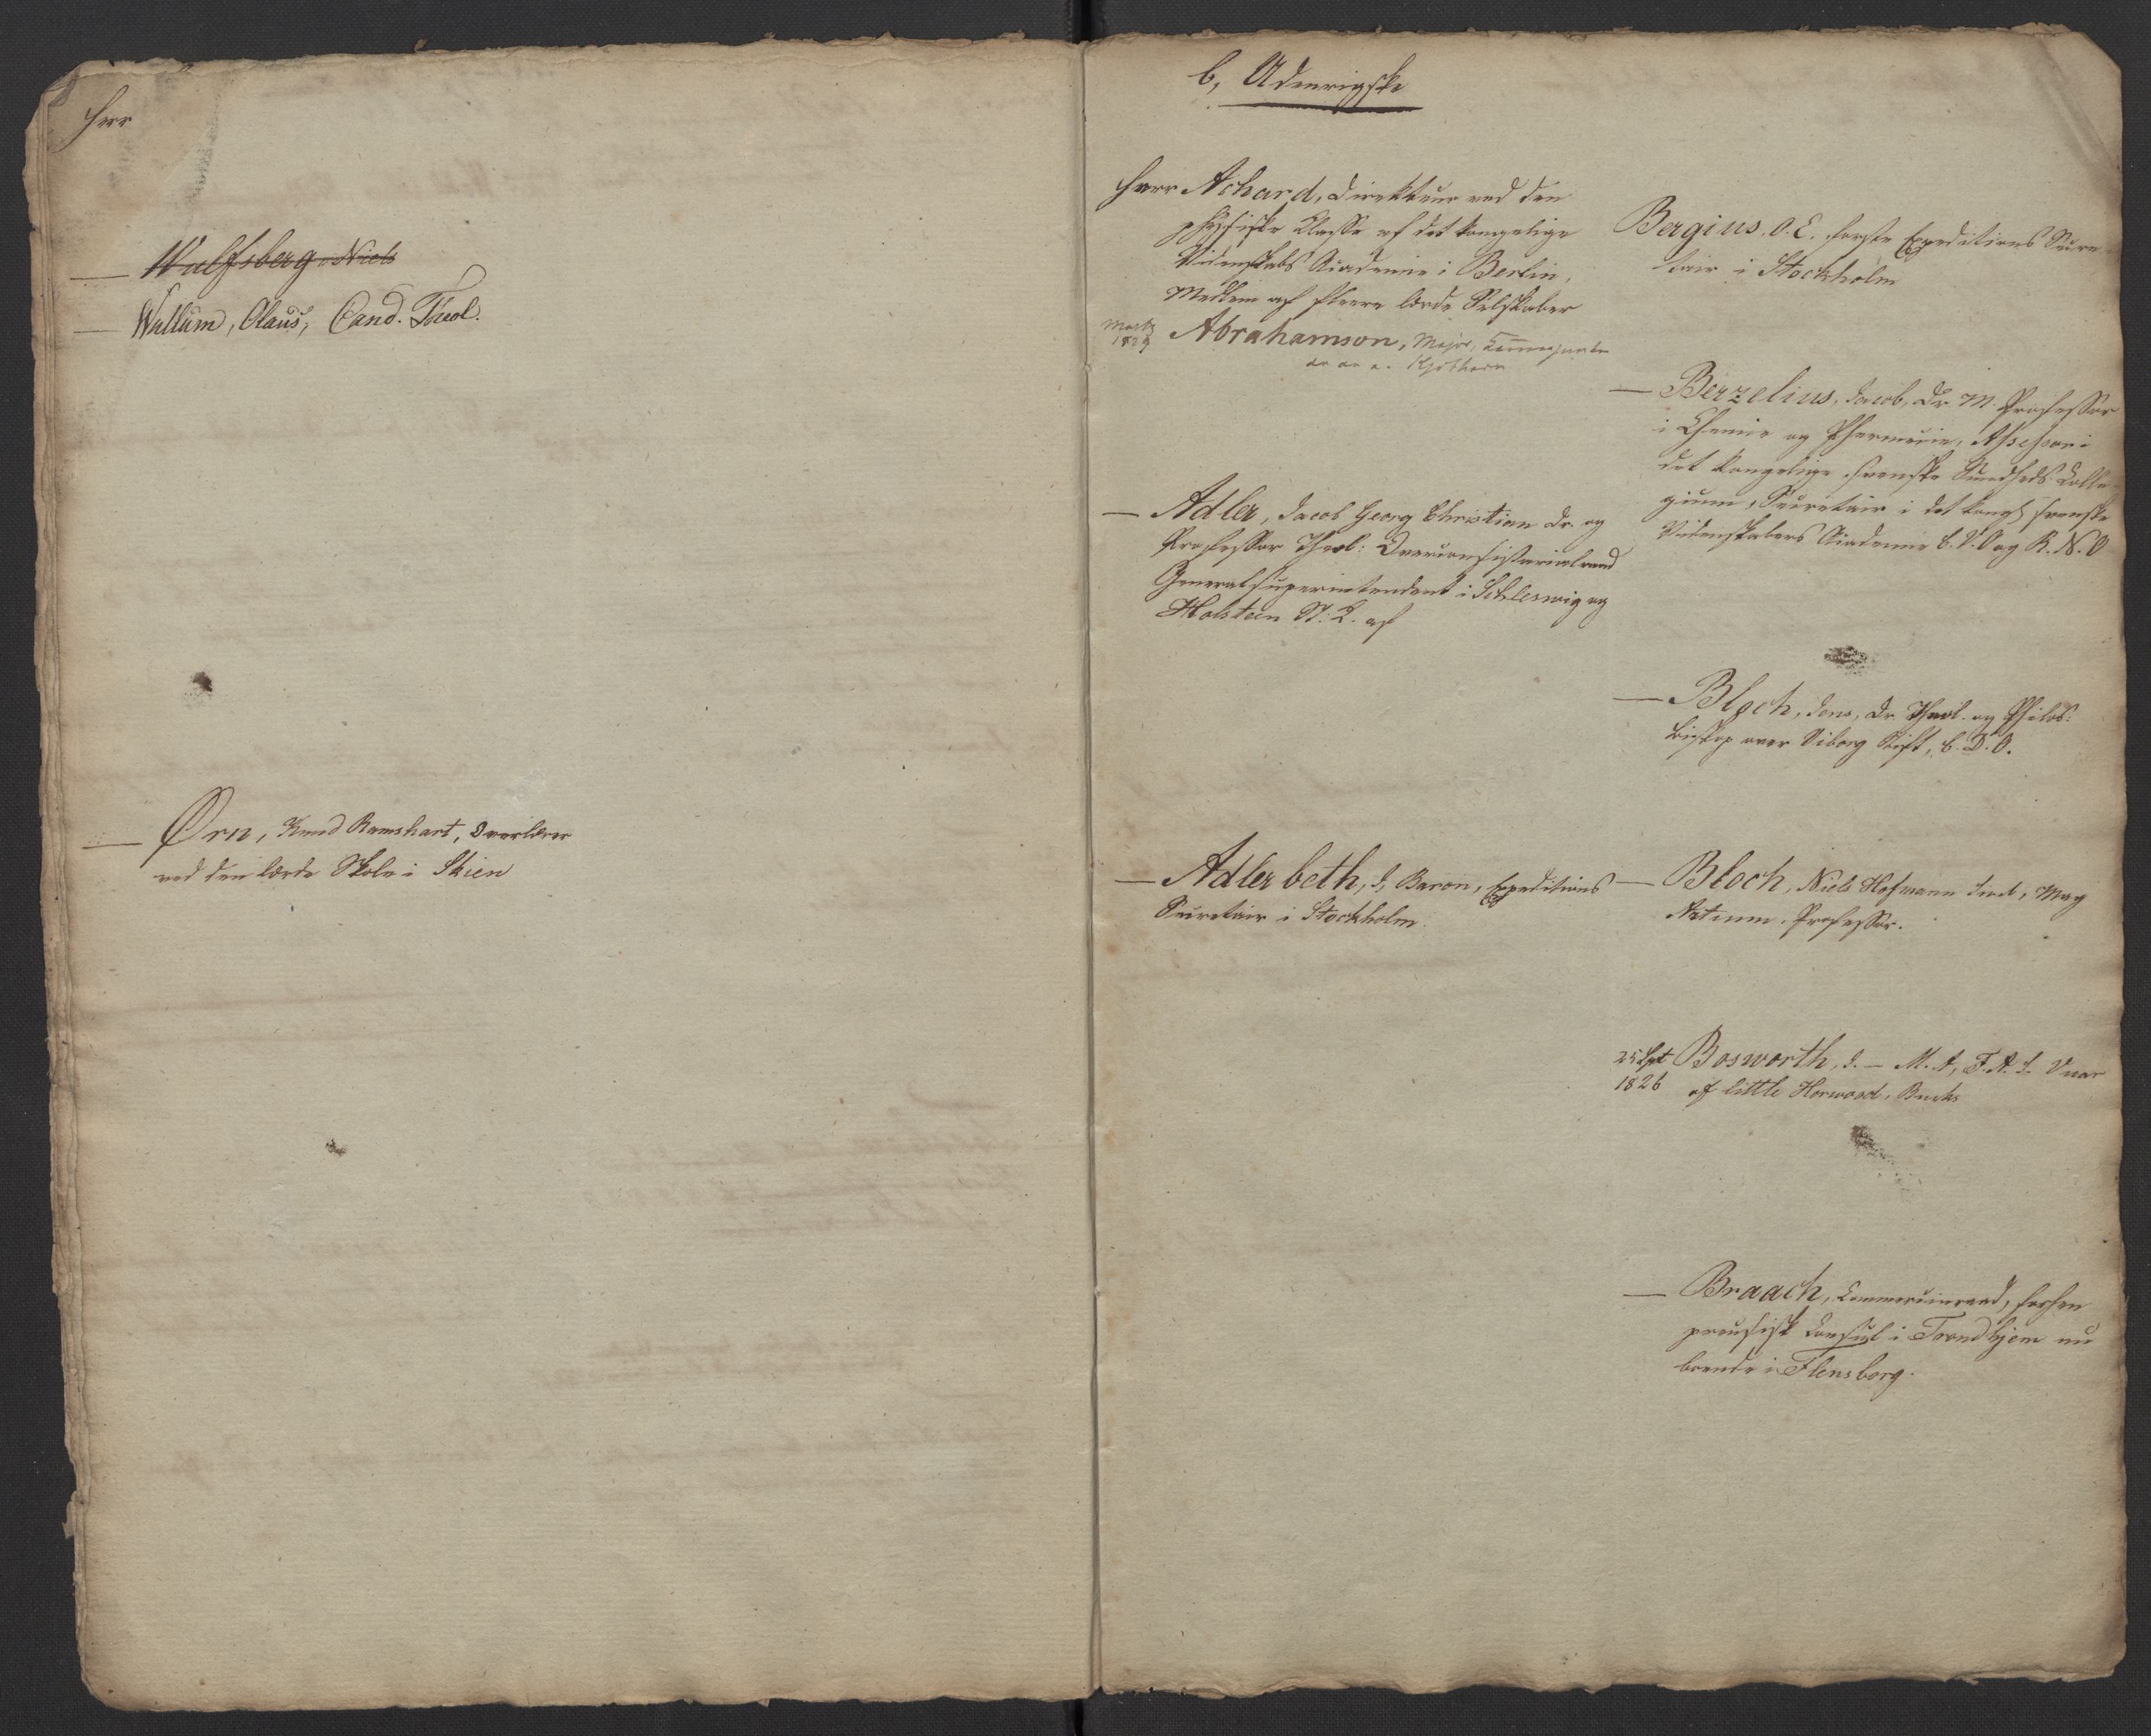 Herr
— Wulfsberg, Niels
— Wullum, Olaus, Cand. Theol.
— Ørn, Knud Ramshart, Overlærer
ved den lærde Skole i Skien
b, Udenrigske
Herr Achard, Direkteur ved den
physiske Classe af det kongelige
Videnskabs Academie i Berlin,
Medlem af fleere lærde Selskaber
Marts 1829 Abrahamson, Major,
Kjøbhavn
— Adler, Jacob Georg Christian Dr. og
Professor Theol: Overconsistorialraad
Generalsuperintendent i Schleswig og
Holsteen St. K. af
— Adlerbeth, J, Baron, Expeditions
Secretair i Stockholm.
Bergius. O. E. første Expeditions Secre-
tair i Stockholm
— Berzelius, Jacob, Dr. M. Professor
i Chemie og Pharmacie, Assessor i
det kongelige svenske Sundheds Colle-
gium, Secretair i det kongl. svenske
Videnskabers Academie C. V. O og R. N. O
— Bloch, Jens, Dr. Theol. og Philos:
Biskop over Viborg Stift, C. D. O.
— Bloch, Niels Hofmann Sevel, Mag
Artium. Professor.
25 Spt 1826 Bosworth, J. — M. A, F. A. S. Vicar
of little Horwood, Bucks
— Braach, Commerceraad, forhen
preussisk Consul i Trondhjem nu
boende i Flensborg.